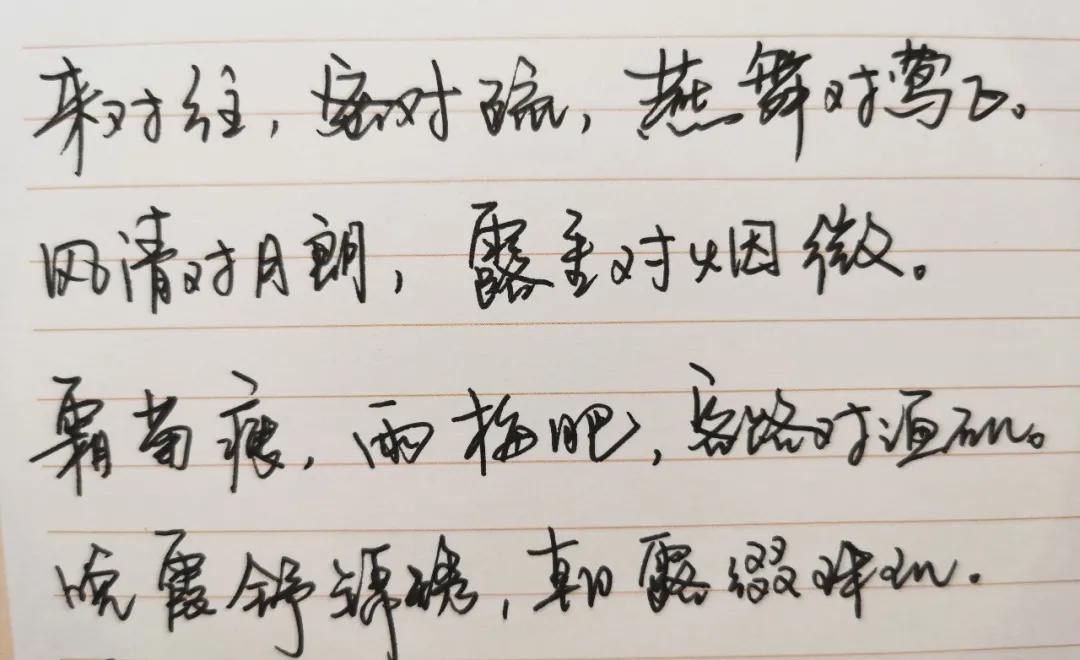 来对往，密对稀，燕舞对莺飞。
风清对月朗，露重对烟微。
霜菊瘦，雨梅肥，客路对渔矶。
晚霞舒锦绣，朝露缀珠玑.